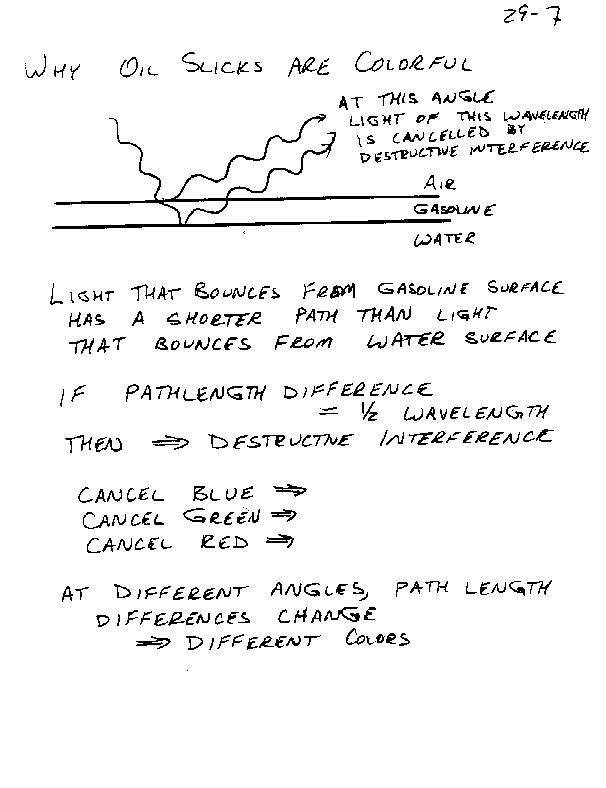 29-7
WHY OIL SLICKS ARE COLORFUL
AT THIS ANGLE
LIGHT OF THIS WAVELENGTH
IS CANCELLED BY
DESTRUCTIVE INTERFERENCE
AIR
GASOLINE
WATER
LIGHT THAT BOUNCES FROM GASOLINE SURFACE
HAS A SHORTER PATH THAN LIGHT
THAT BOUNCES FROM WATER SURFACE
IF PATHLENGTH DIFFERENCE
= 1/2 WAVELENGTH
THEN ⇒ DESTRUCTIVE INTERFERENCE
CANCEL BLUE ⇒
CANCEL GREEN ⇒
CANCEL RED ⇒
AT DIFFERENT ANGLES, PATH LENGTH
DIFFERENCES CHANGE
⇒ DIFFERENT COLORS